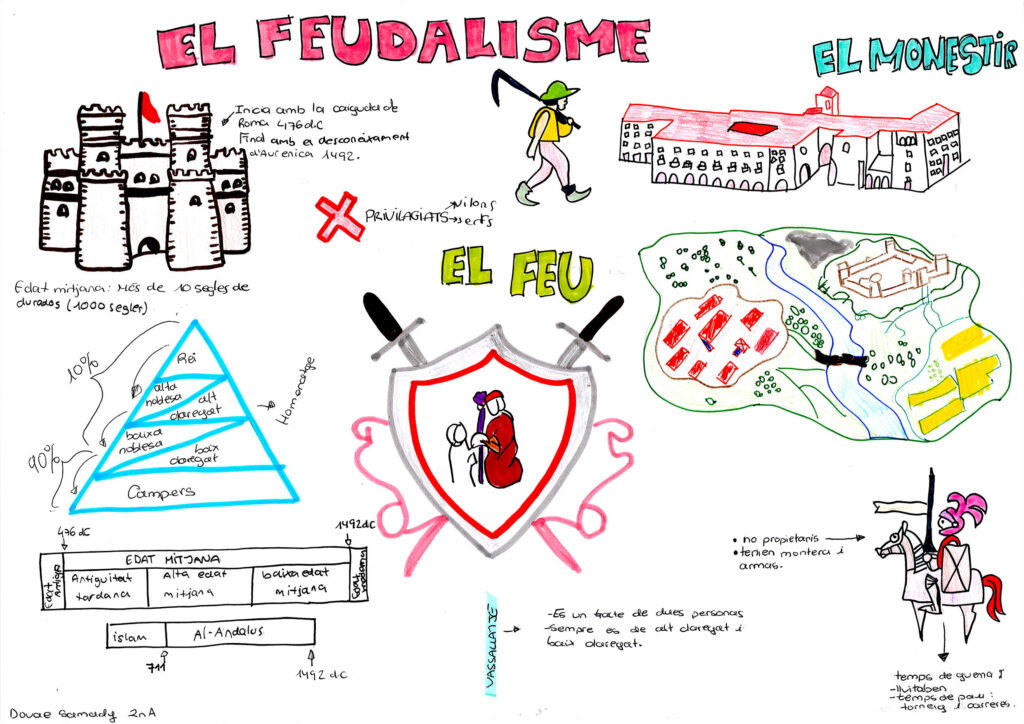 EL FEUDALISME
EL MONESTIR
Inicia amb la caiguda de
Roma 476 d.C
Final amb es desconeixament
d'Amenica 1492.
PRIVILAGIATS
vilans
serfs
EL FEU
Edat mitjana: Més de 10 segles de
durados (1000 segles)
10%
90%
Rei
alta
noblesa
alt
claregat
baixa
noblesa
baix
claregat
Campers
Homenatge
476 d.C
1492 d.C
EDAT MITJANA
Edat Antiga
Antiguitat
tardana
Alta edat
mitjana
baixa edat
mitjana
Edat moderna
islam
Al-Andalus
711
1492 d.C
VASSALLANJE
-Es un tracte de dues personas
-Sempre es de alt claregat i
baix claregat.
• no propietaris
• tenien montera i
armas.
temps de guerra
-lluitaben
-temps de pau:
torneig i carreres.
Douae Samady 2nA